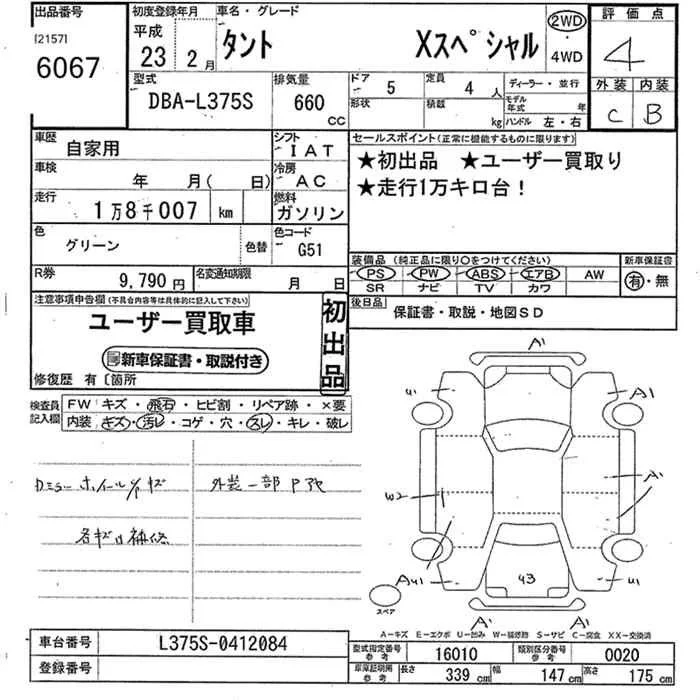 出品番号 初度登録年月 車名・グレード 2WD 評価点
[2157] 平成 タント Xスペシャル ・ 4
6067 23年 2月 4WD 外装 内装
型式 排気量 ドア 5 定員 4人 ディーラー・並行 C B
DBA-L375S 660 cc 形状 積載 kg モデル年式 年 ハンドル 左・右
車歴 自家用 シフト IAT セールスポイント(正常に機能するものに限ります)
車検 年 月( 日) 冷房 AC ★初出品 ★ユーザー買取り
走行 1万8千007 km 燃料 ガソリン ★走行1万キロ台!
色 グリーン 色替 色コード G51
装備品 (純正品に限り○をつけてください) 新車保証書
R券 9,790円 名変通知期限 月 日 PS PW ABS エアB AW 有・無
SR ナビ TV カワ
注意事項申告欄(不具合内容等は具体的に記入して下さい) 初出品 後日品 保証書・取説・地図SD
ユーザー買取車
新車保証書・取説付き
修復歴 有〔箇所
検査員記入欄 FW キズ・飛石・ヒビ割・リペア跡・×要
内装 キズ・汚レ・コゲ・穴・スレ・キレ・破レ
A1
U1 A1
ホイールキズ 外装一部
W2 A1
補修
AU1 U3 U1
スペア
A1 A1
A-キズ E-エクボ U-凹み W-補修跡 S-サビ C-腐食 XX-交換済
車台番号 L375S-0412084 型式指定番号 参考 16010 類別区分番号 参考 0020
登録番号 車庫証明用 参考 長さ 339 cm 幅 147 cm 高さ 175 cm